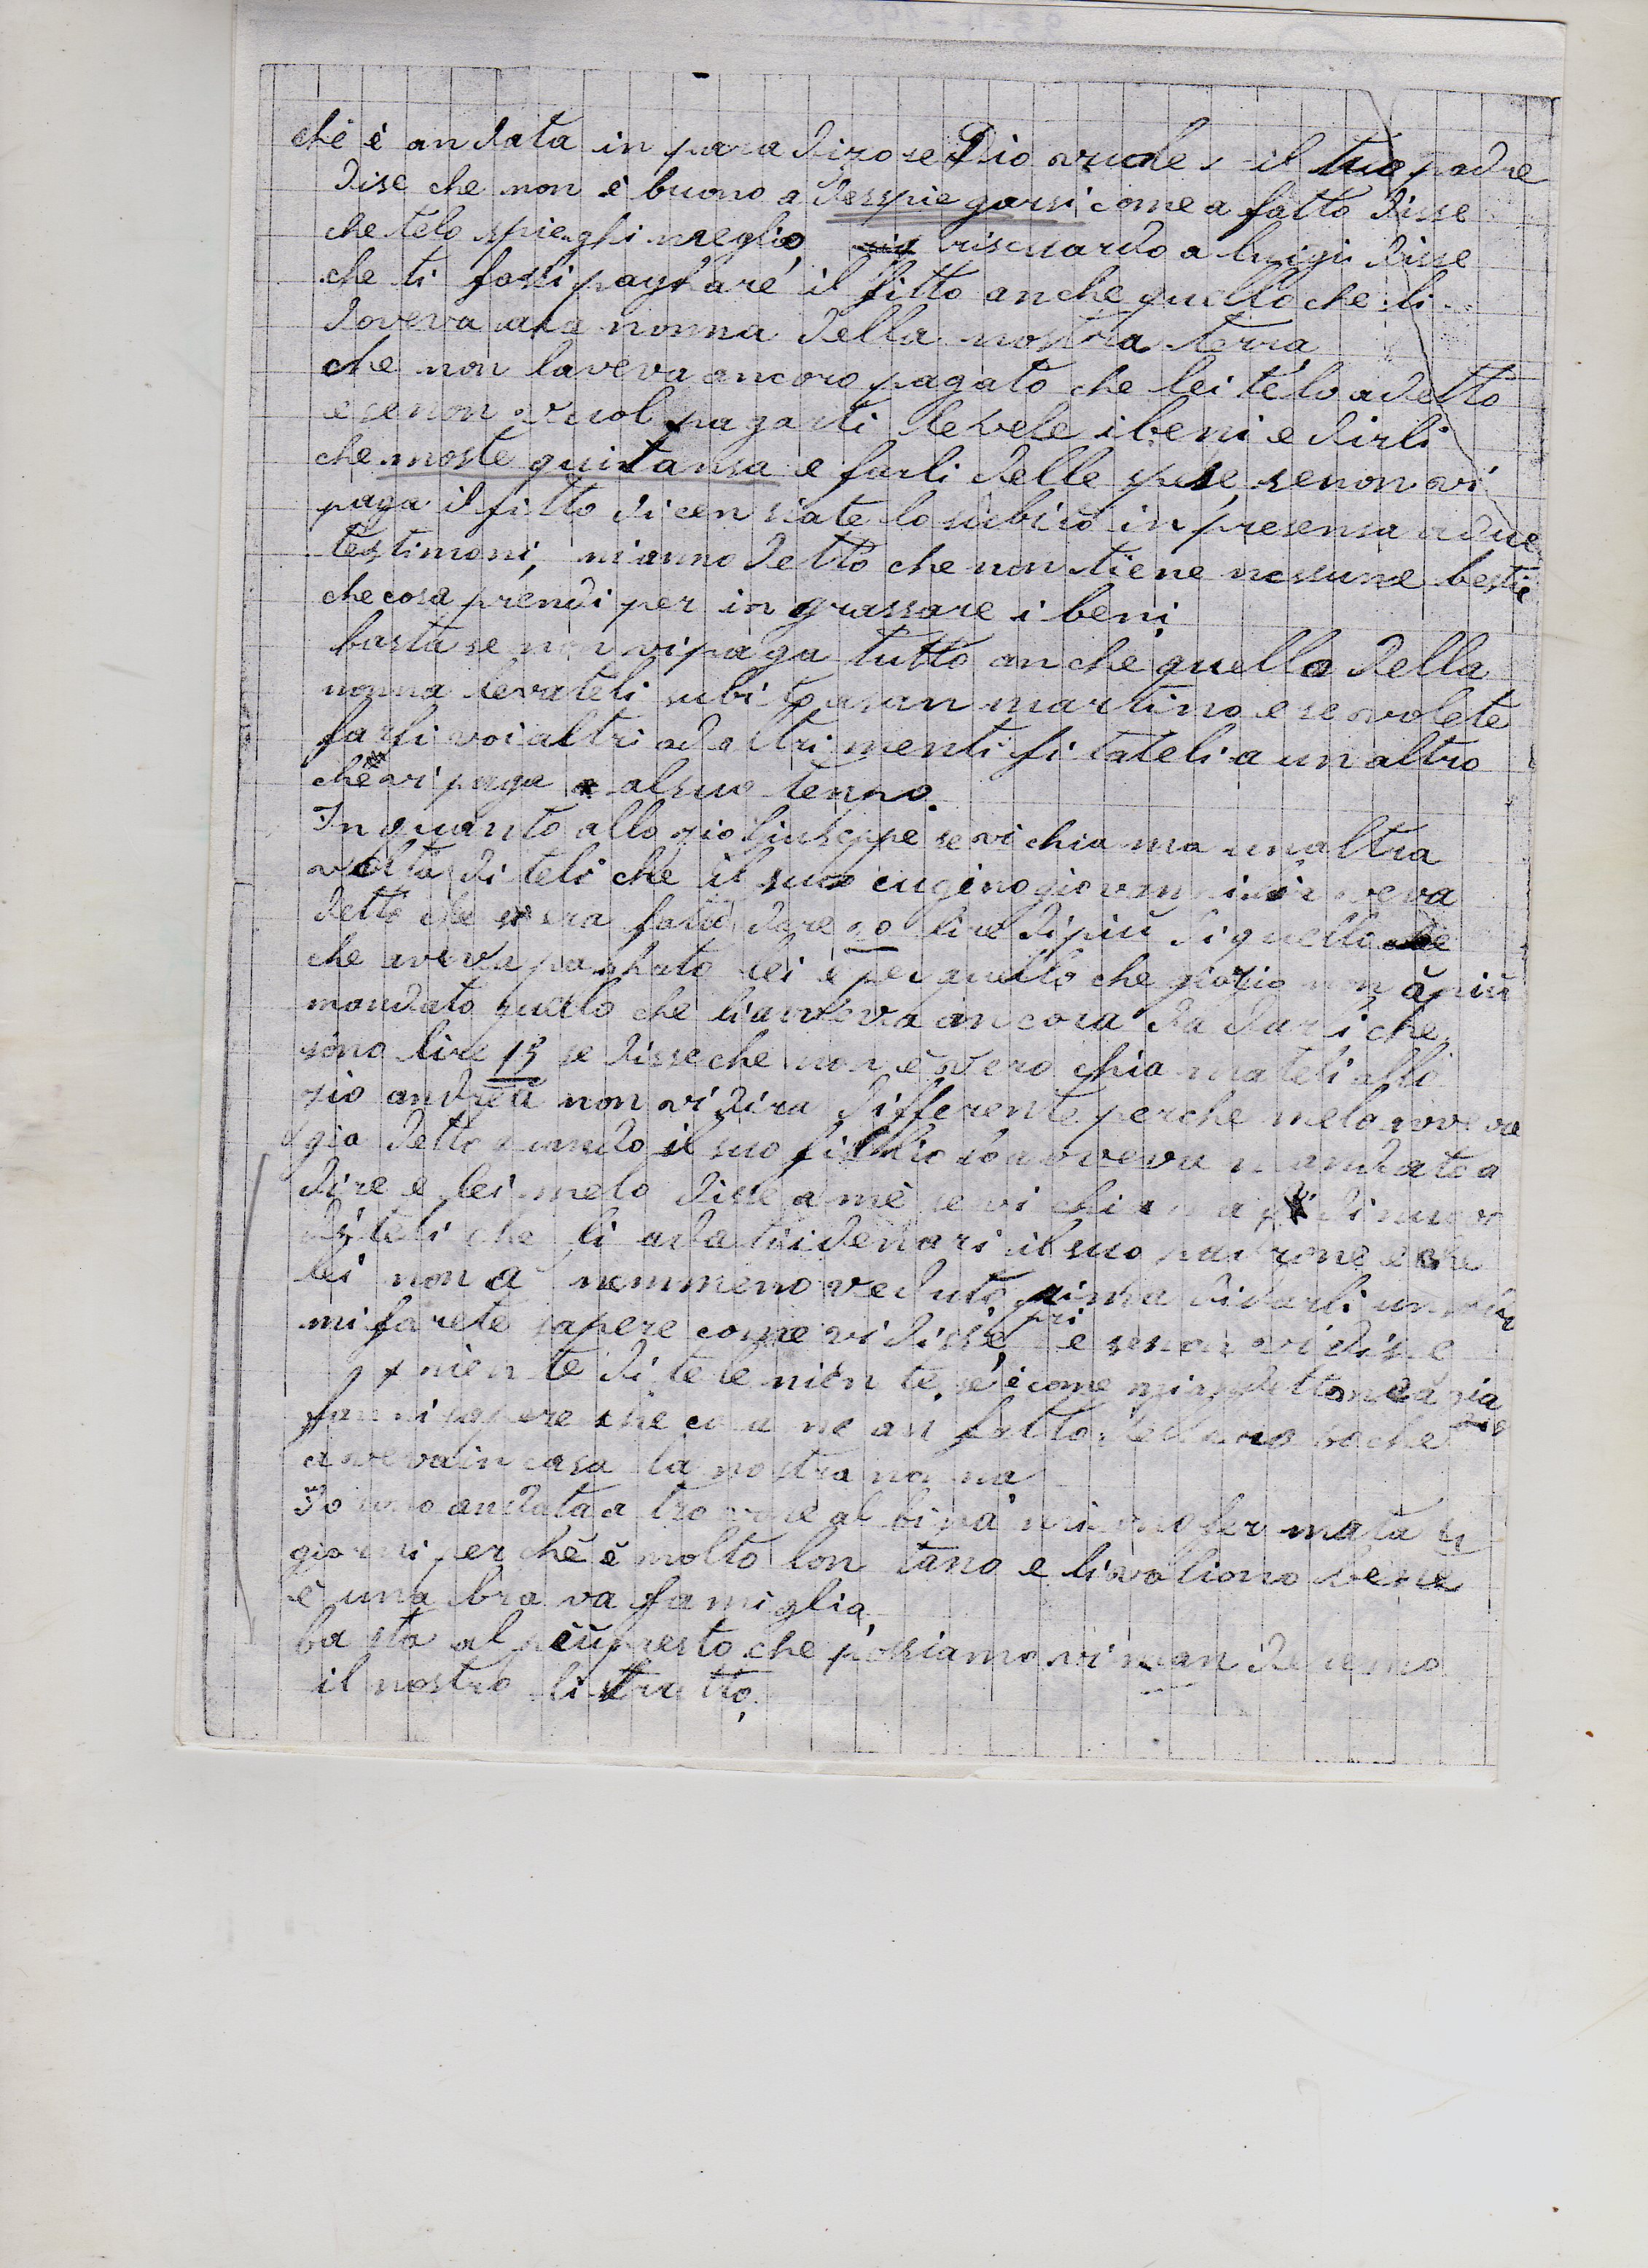 chè è andata in paradizo se Dio vuole il tuo padre
dise che non è buono a desspiegarsi come a fatto disse
che telo spieghi meglio, riscuardo a luigi disse
che ti fassi paghare il fitto anche quello che li
doveva ala nonna della nostra terra
che non laveva ancoro pagato che lei telo a detto
e senon vuol pagarti levele i beni e dirli
che moste quitansa e farli delle spese, senon vi
paga il fitto dicensiatelo subito in presensa a due
testimoni, mi anno detto che non tiene nessune bestie
che cosa prendi per in grassare i beni
basta se non vi paga tutto anche quello della
nonna levateli subito a san martino e se volete
farli voi altri ad altri menti fitateli a un altro
che vi paga al suo tenpo.
In quanto allo zio Giuseppe se vi chia ma unaltra
volta diteli che il suo cugino giovan
detto che era fatto dare lire dipiù di quello
che aveva paghato lei è per quello che giorgio non à più
mandato quello che li avveva ancora da darli che
sono lire 15 se disse che non è vero chiamateli allo
zio andrea non vi dira differente perche melo avveva
gia detto quando il suo fi lo avveva mandato a
dire e lei melo disse a mè se vi chiama di nuovo
diteli che li a denari il suo padrone e che
lei non a nemmeno veduto prima di darli un
mi farete sapere come vi disse, e senon vi disse
niente di tele niente, se è come
fammi sapere che cosa ne ai fatto della roba che
aveva in casa la nostra nonna
Io sono andata a trovare al mi sono fermata
giorni per chè è molto lon tano e li voliono bene
è una bra va famiglia
basta al più presto che possiamo vi man deremo
il nostro litratto,